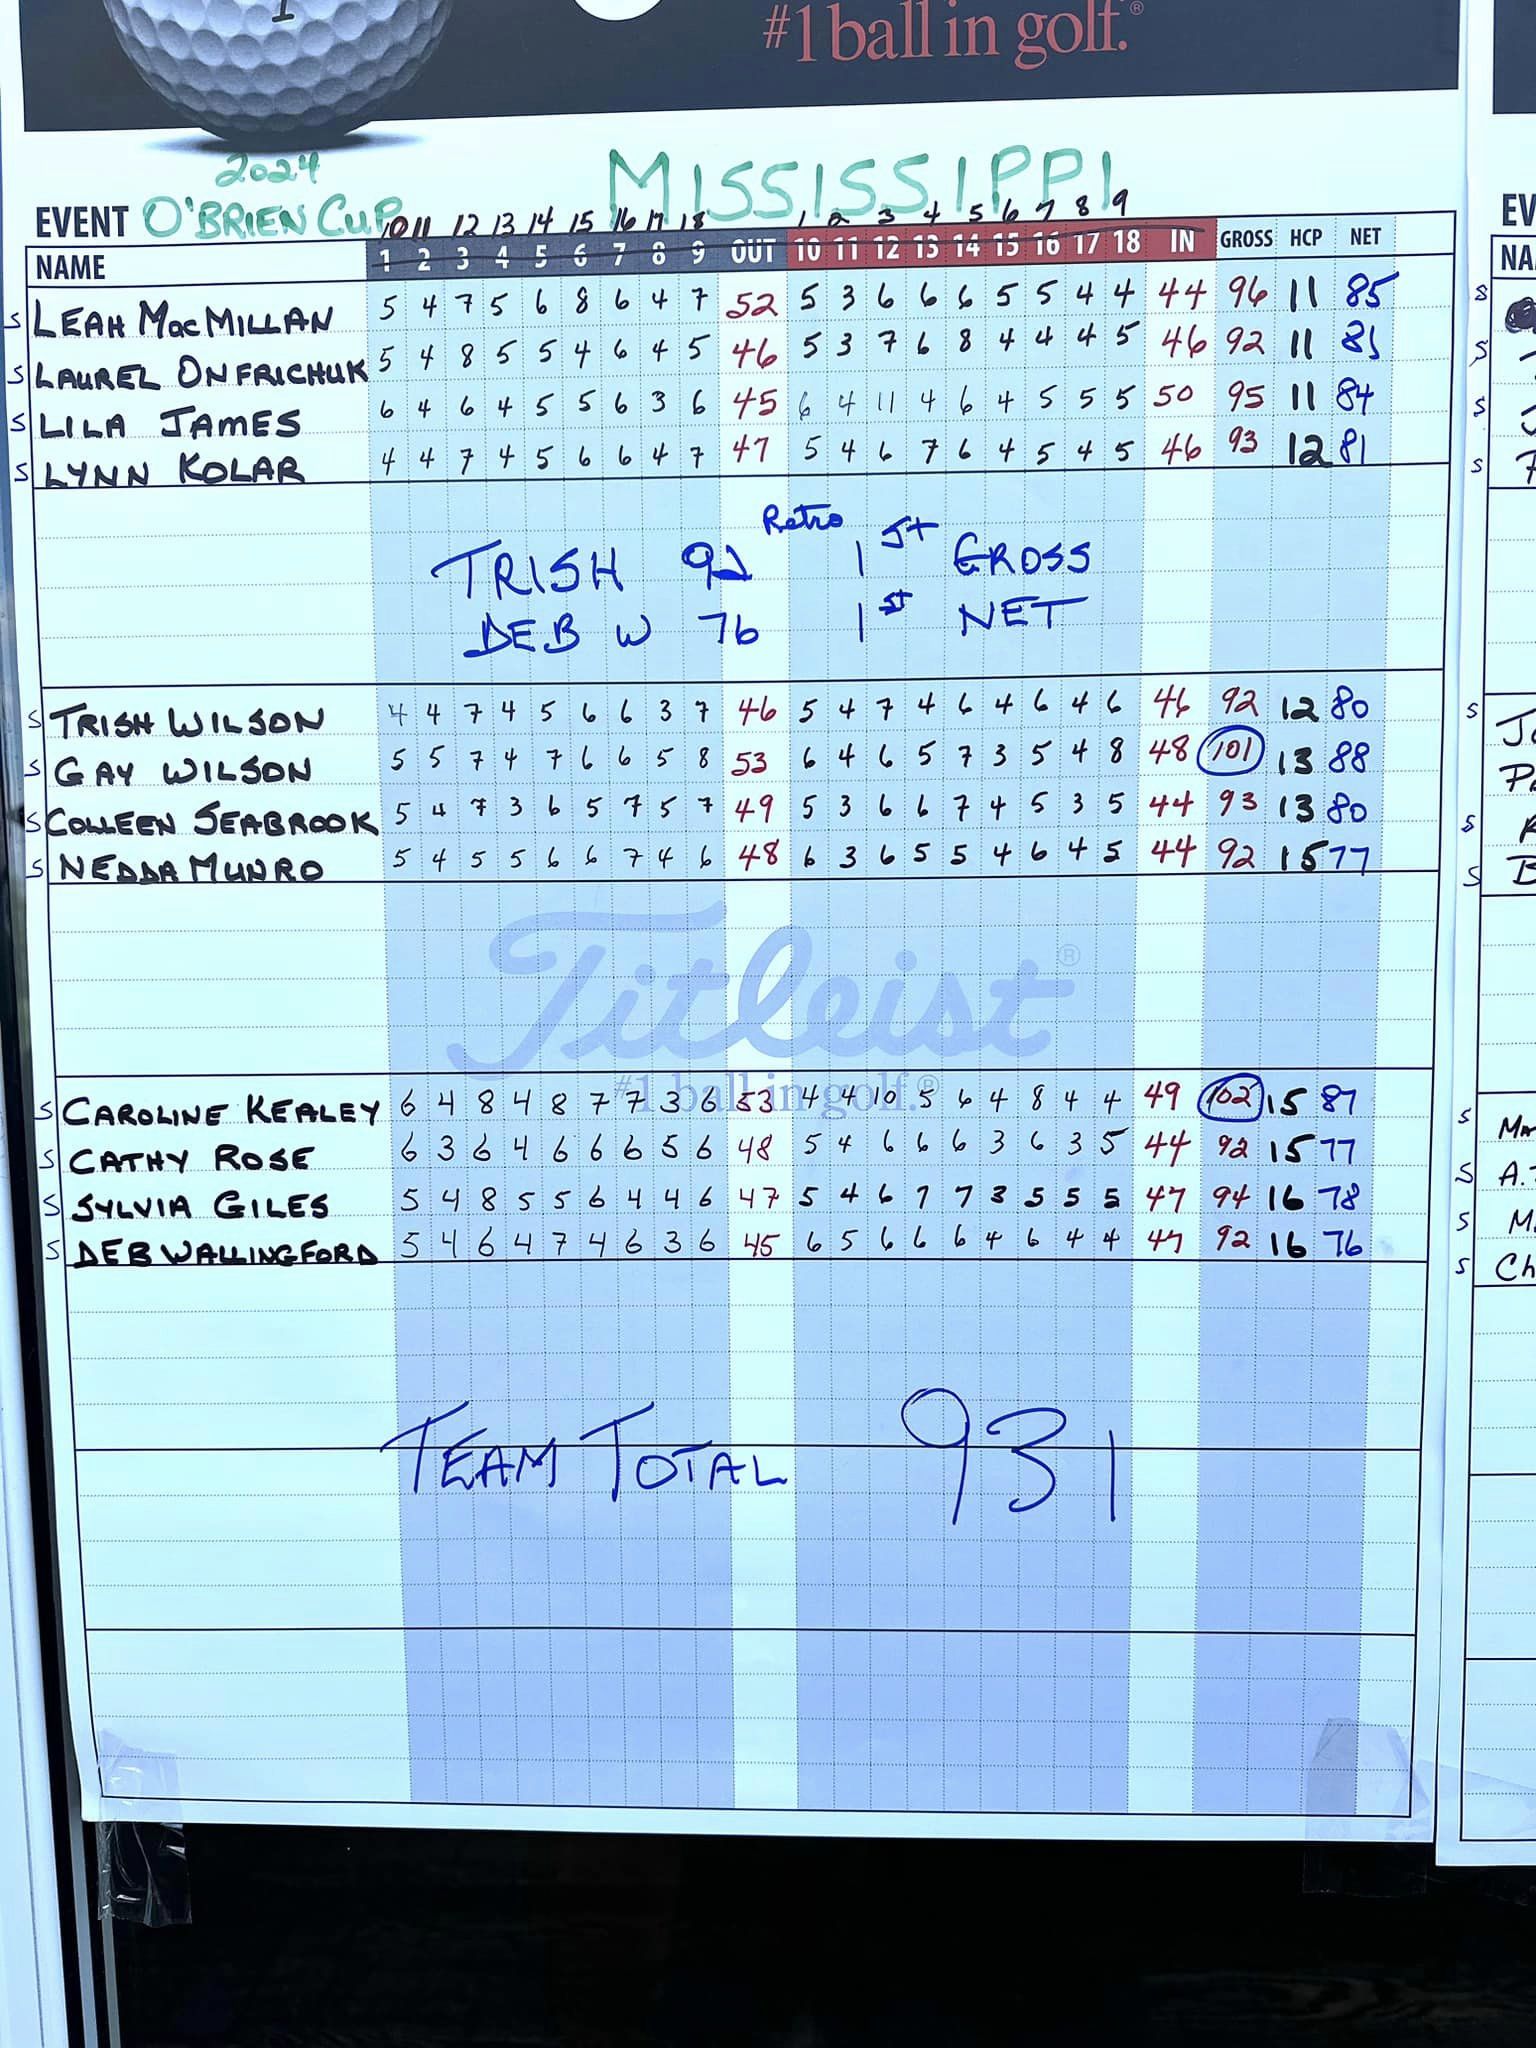 1
#1 ball in golf.®
2024
MISSISSIPPI
EVENT O'BRIEN CUP
10 11 12 13 14 15 16 17 18 1 2 3 4 5 6 7 8 9
NAME 1 2 3 4 5 6 7 8 9 OUT 10 11 12 13 14 15 16 17 18 IN GROSS HCP NET
S LEAH MacMILLAN 5 4 7 5 6 8 6 4 7 52 5 3 6 6 6 5 5 4 4 44 96 11 85
S LAUREL ONFRICHUK 5 4 8 5 5 4 6 4 5 46 5 3 7 6 8 4 4 4 5 46 92 11 81
S LILA JAMES 6 4 6 4 5 5 6 3 6 45 6 4 11 4 6 4 5 5 5 50 95 11 84
S LYNN KOLAR 4 4 7 4 5 6 6 4 7 47 5 4 6 7 6 4 5 4 5 46 93 12 81
Retro
TRISH 92 1st GROSS
DEB W 76 1st NET
S TRISH WILSON 4 4 7 4 5 6 6 3 7 46 5 4 7 4 6 4 6 4 6 46 92 12 80
S GAY WILSON 5 5 7 4 7 6 6 5 8 53 6 4 6 5 7 3 5 4 8 48 101 13 88
S COLLEEN SEABROOK 5 4 7 3 6 5 7 5 7 49 5 3 6 6 7 4 5 3 5 44 93 13 80
S NEDDA MUNRO 5 4 5 5 6 6 7 4 6 48 6 3 6 5 5 4 6 4 5 44 92 15 77
Titleist®
#1 ball in golf.®
S CAROLINE KEALEY 6 4 8 4 8 7 7 3 6 53 4 4 10 5 6 4 8 4 4 49 102 15 87
S CATHY ROSE 6 3 6 4 6 6 6 5 6 48 5 4 6 6 6 3 6 3 5 44 92 15 77
S SYLVIA GILES 5 4 8 5 5 6 4 4 6 47 5 4 6 7 7 3 5 5 5 47 94 16 78
S DEB WALLINGFORD 5 4 6 4 7 4 6 3 6 45 6 5 6 6 6 4 6 4 4 47 92 16 76
TEAM TOTAL 931